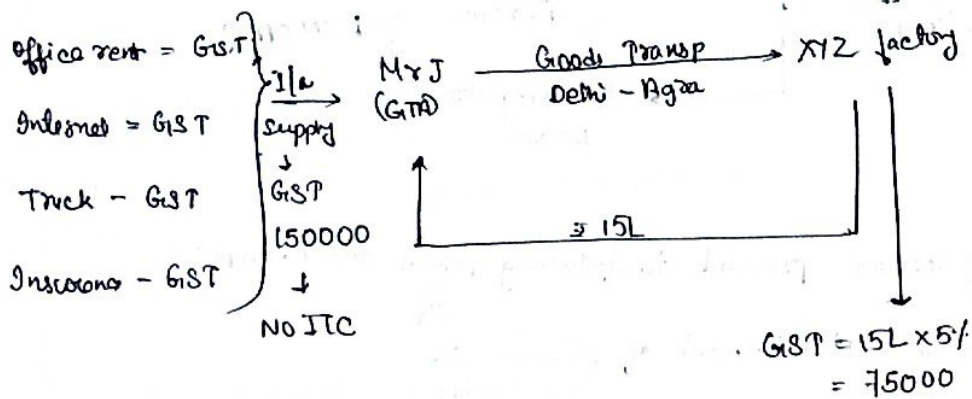 Office rent = GST
Internet = GST
Truck - GST
Insurance - GST
I/w
supply
↓
GST
150000
↓
NO ITC
Mr J
(GTA)
Goods Transp
Delhi - Agra
XYZ factory
= 15L
GST = 15L x 5%
= 75000